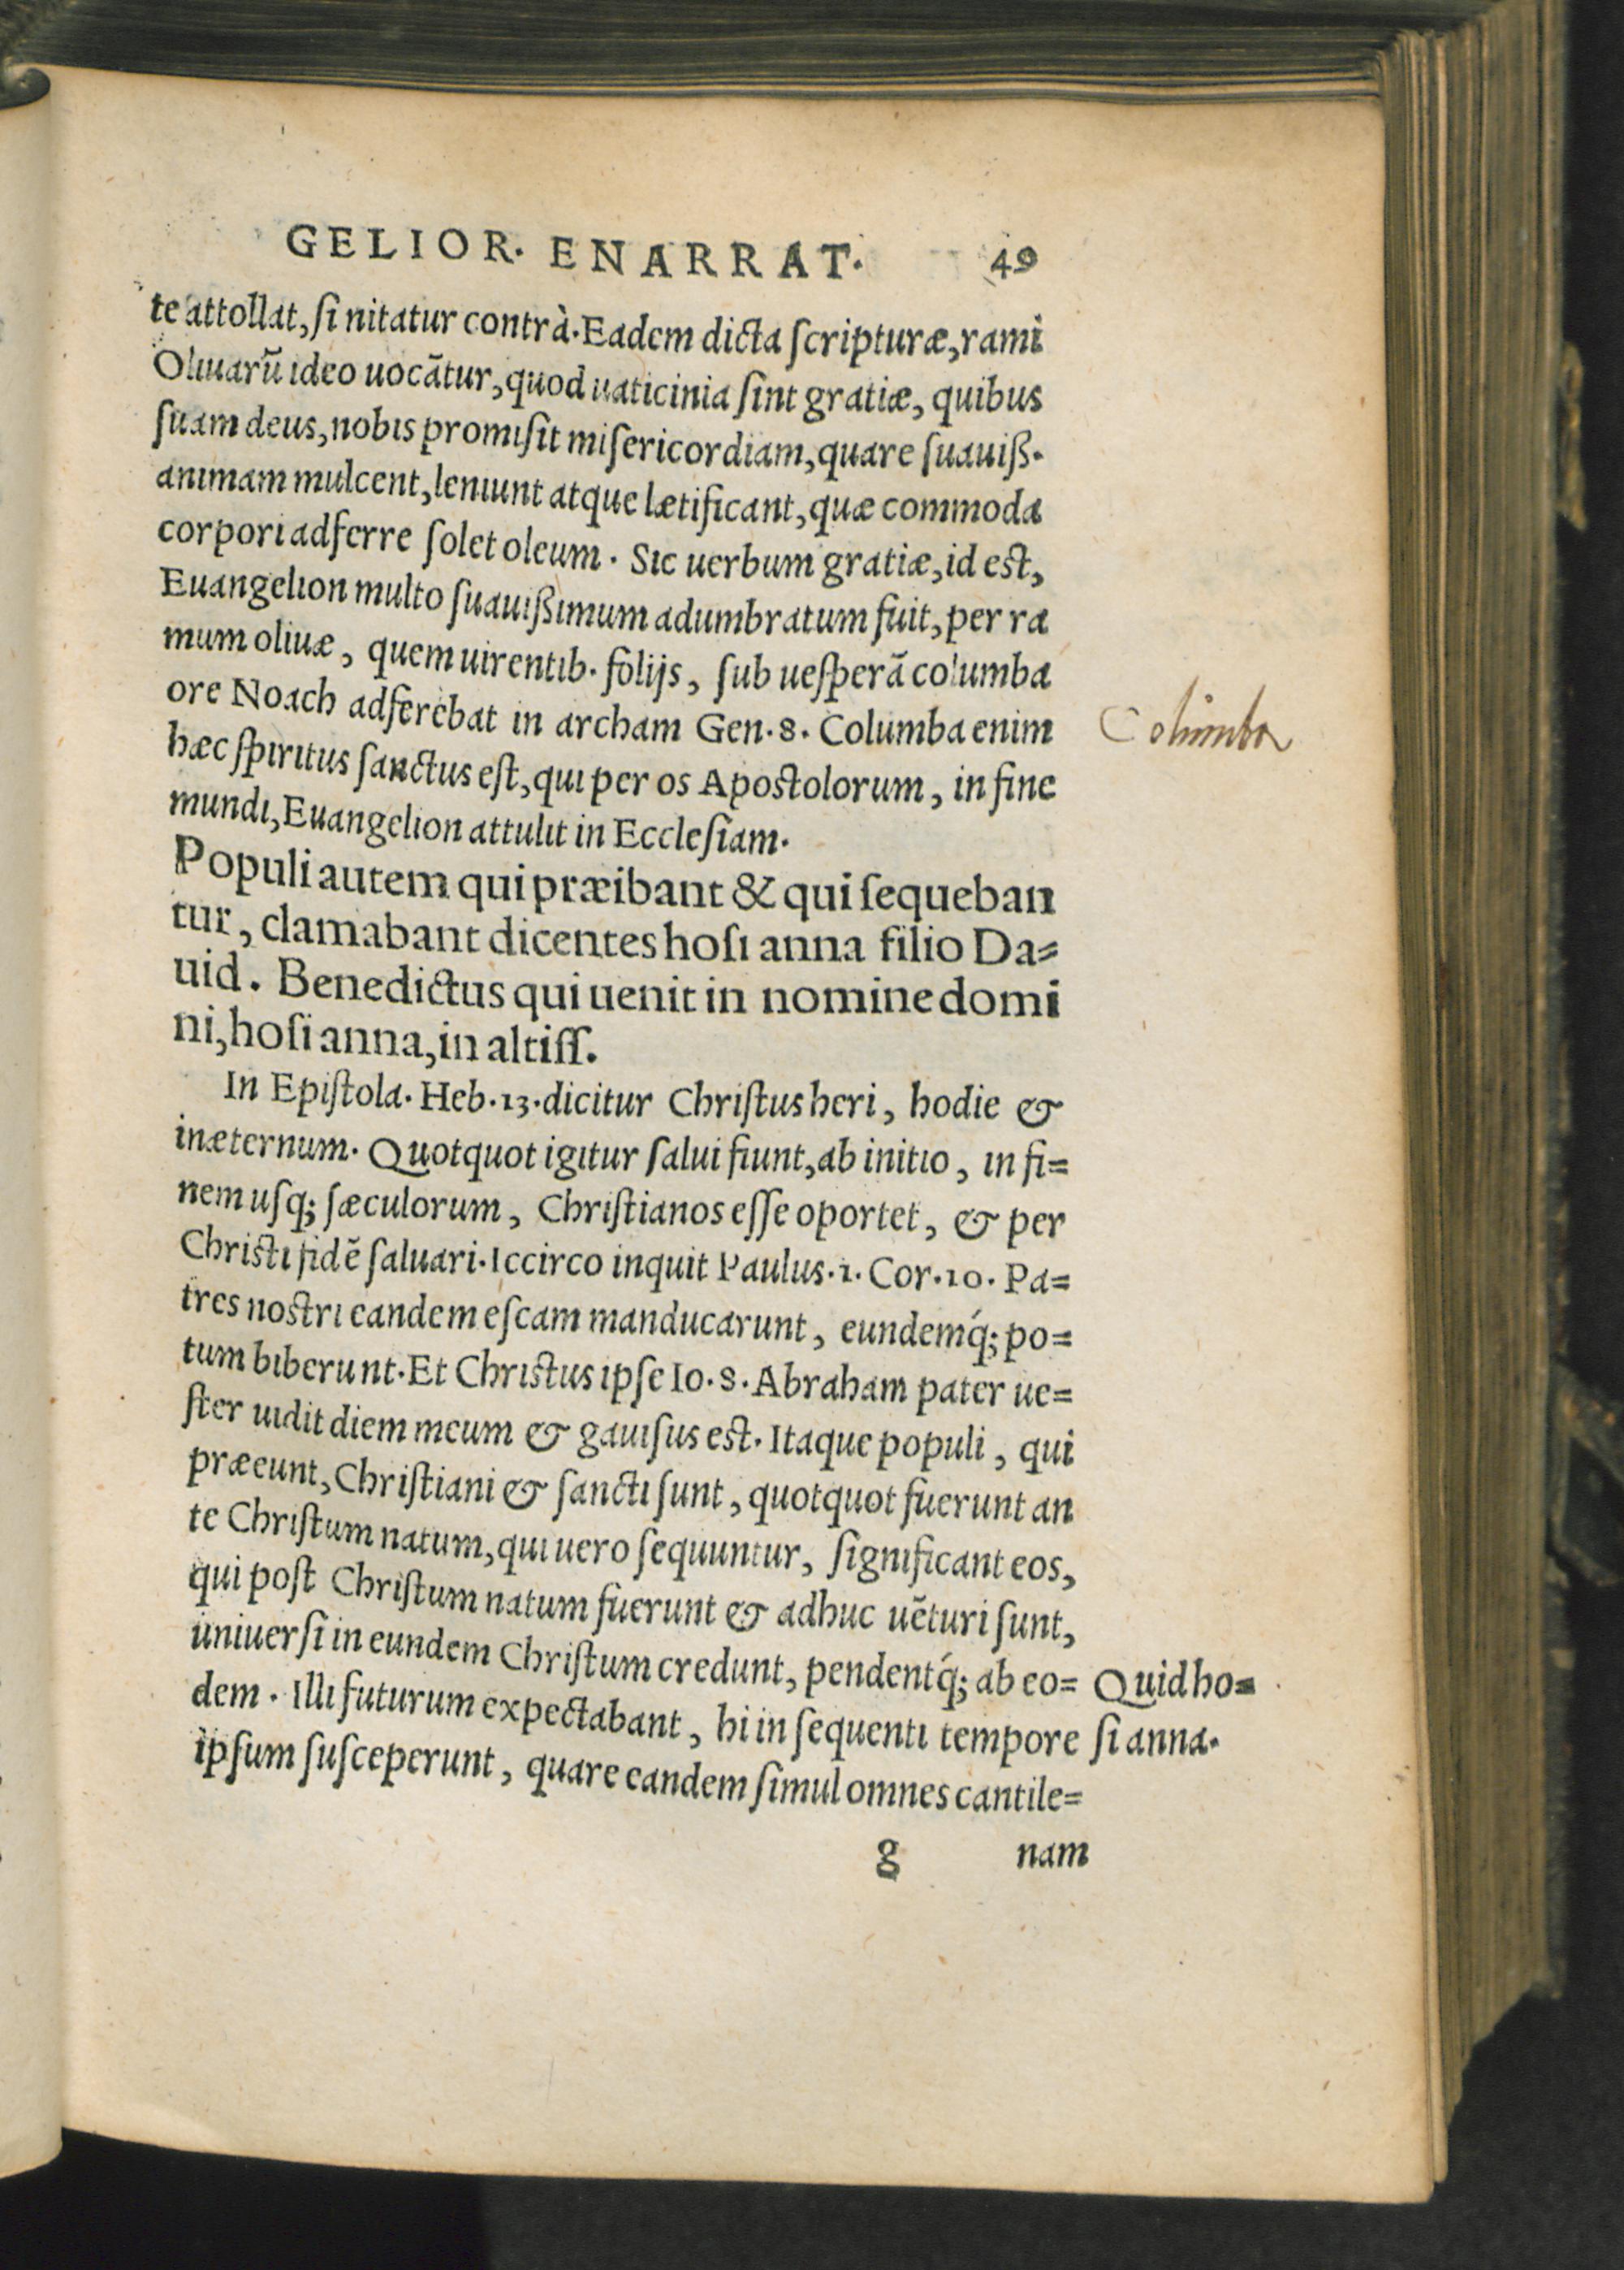 GELIOR. ENARRAT. 49
te attollat, ſi nitatur contrà. Eadem dicta ſcripturæ, rami
Oliuarũ ideo uocãtur, quod uaticinia ſint gratiæ, quibus
ſuam deus, nobis promiſit miſericordiam, quare ſuauiß.
animam mulcent, leniunt atque lætificant, quæ commoda
corpori adferre ſolet oleum. Sic uerbum gratiæ, id eſt,
Euangelion multo ſuauißimum adumbratum fuit, per ra
mum oliuæ, quem uirentib. folijs, ſub ueſperã columba
ore Noach adferebat in archam Gen. 8. Columba enim
Columba
hæc ſpiritus ſanctus eſt, qui per os Apoſtolorum, in fine
mundi, Euangelion attulit in Eccleſiam.
Populi autem qui præibant & qui ſequeban
tur, clamabant dicentes hoſi anna filio Da=
uid. Benedictus qui uenit in nomine domi
ni, hoſi anna, in altiſſ.
In Epiſtola. Heb. 13. dicitur Chriſtus heri, hodie &
inæternum. Quotquot igitur ſalui fiunt, ab initio, in fi=
nem uſq; ſæculorum, Chriſtianos eſſe oportet, & per
Chriſti fidẽ ſaluari. Iccirco inquit Paulus. 1. Cor. 10. Pa=
tres noſtri eandem eſcam manducarunt, eundemq́; po=
tum biberunt. Et Chriſtus ipſe Io. 8. Abraham pater ue=
ſter uidit diem meum & gauiſus eſt. Itaque populi, qui
præeunt, Chriſtiani & ſancti ſunt, quotquot fuerunt an
te Chriſtum natum, qui uero ſequuntur, ſignificant eos,
qui poſt Chriſtum natum fuerunt & adhuc uẽturi ſunt,
uniuerſi in eundem Chriſtum credunt, pendentq́; ab eo=
dem. Illi futurum expectabant, hi in ſequenti tempore
ipſum ſuſceperunt, quare eandem ſimul omnes cantile=
Quid ho=
ſi anna.
g nam